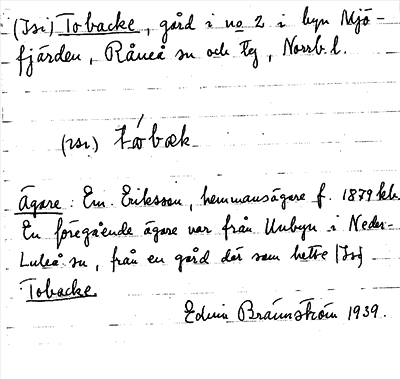 (Isi) Tobacke, gård i no 2 i byn Mjö-
fjärden, Råneå sn och tlg, Norrb. l.
(ɪsɪ) tǻbæk
Ägare: Em. Eriksson, hemmansägare f. 1879
En föregående ägare var från Unbyn i Neder-
Luleå sn, från en gård där som hette (Isi)
Tobacke.
Edwin Brännström 1939.